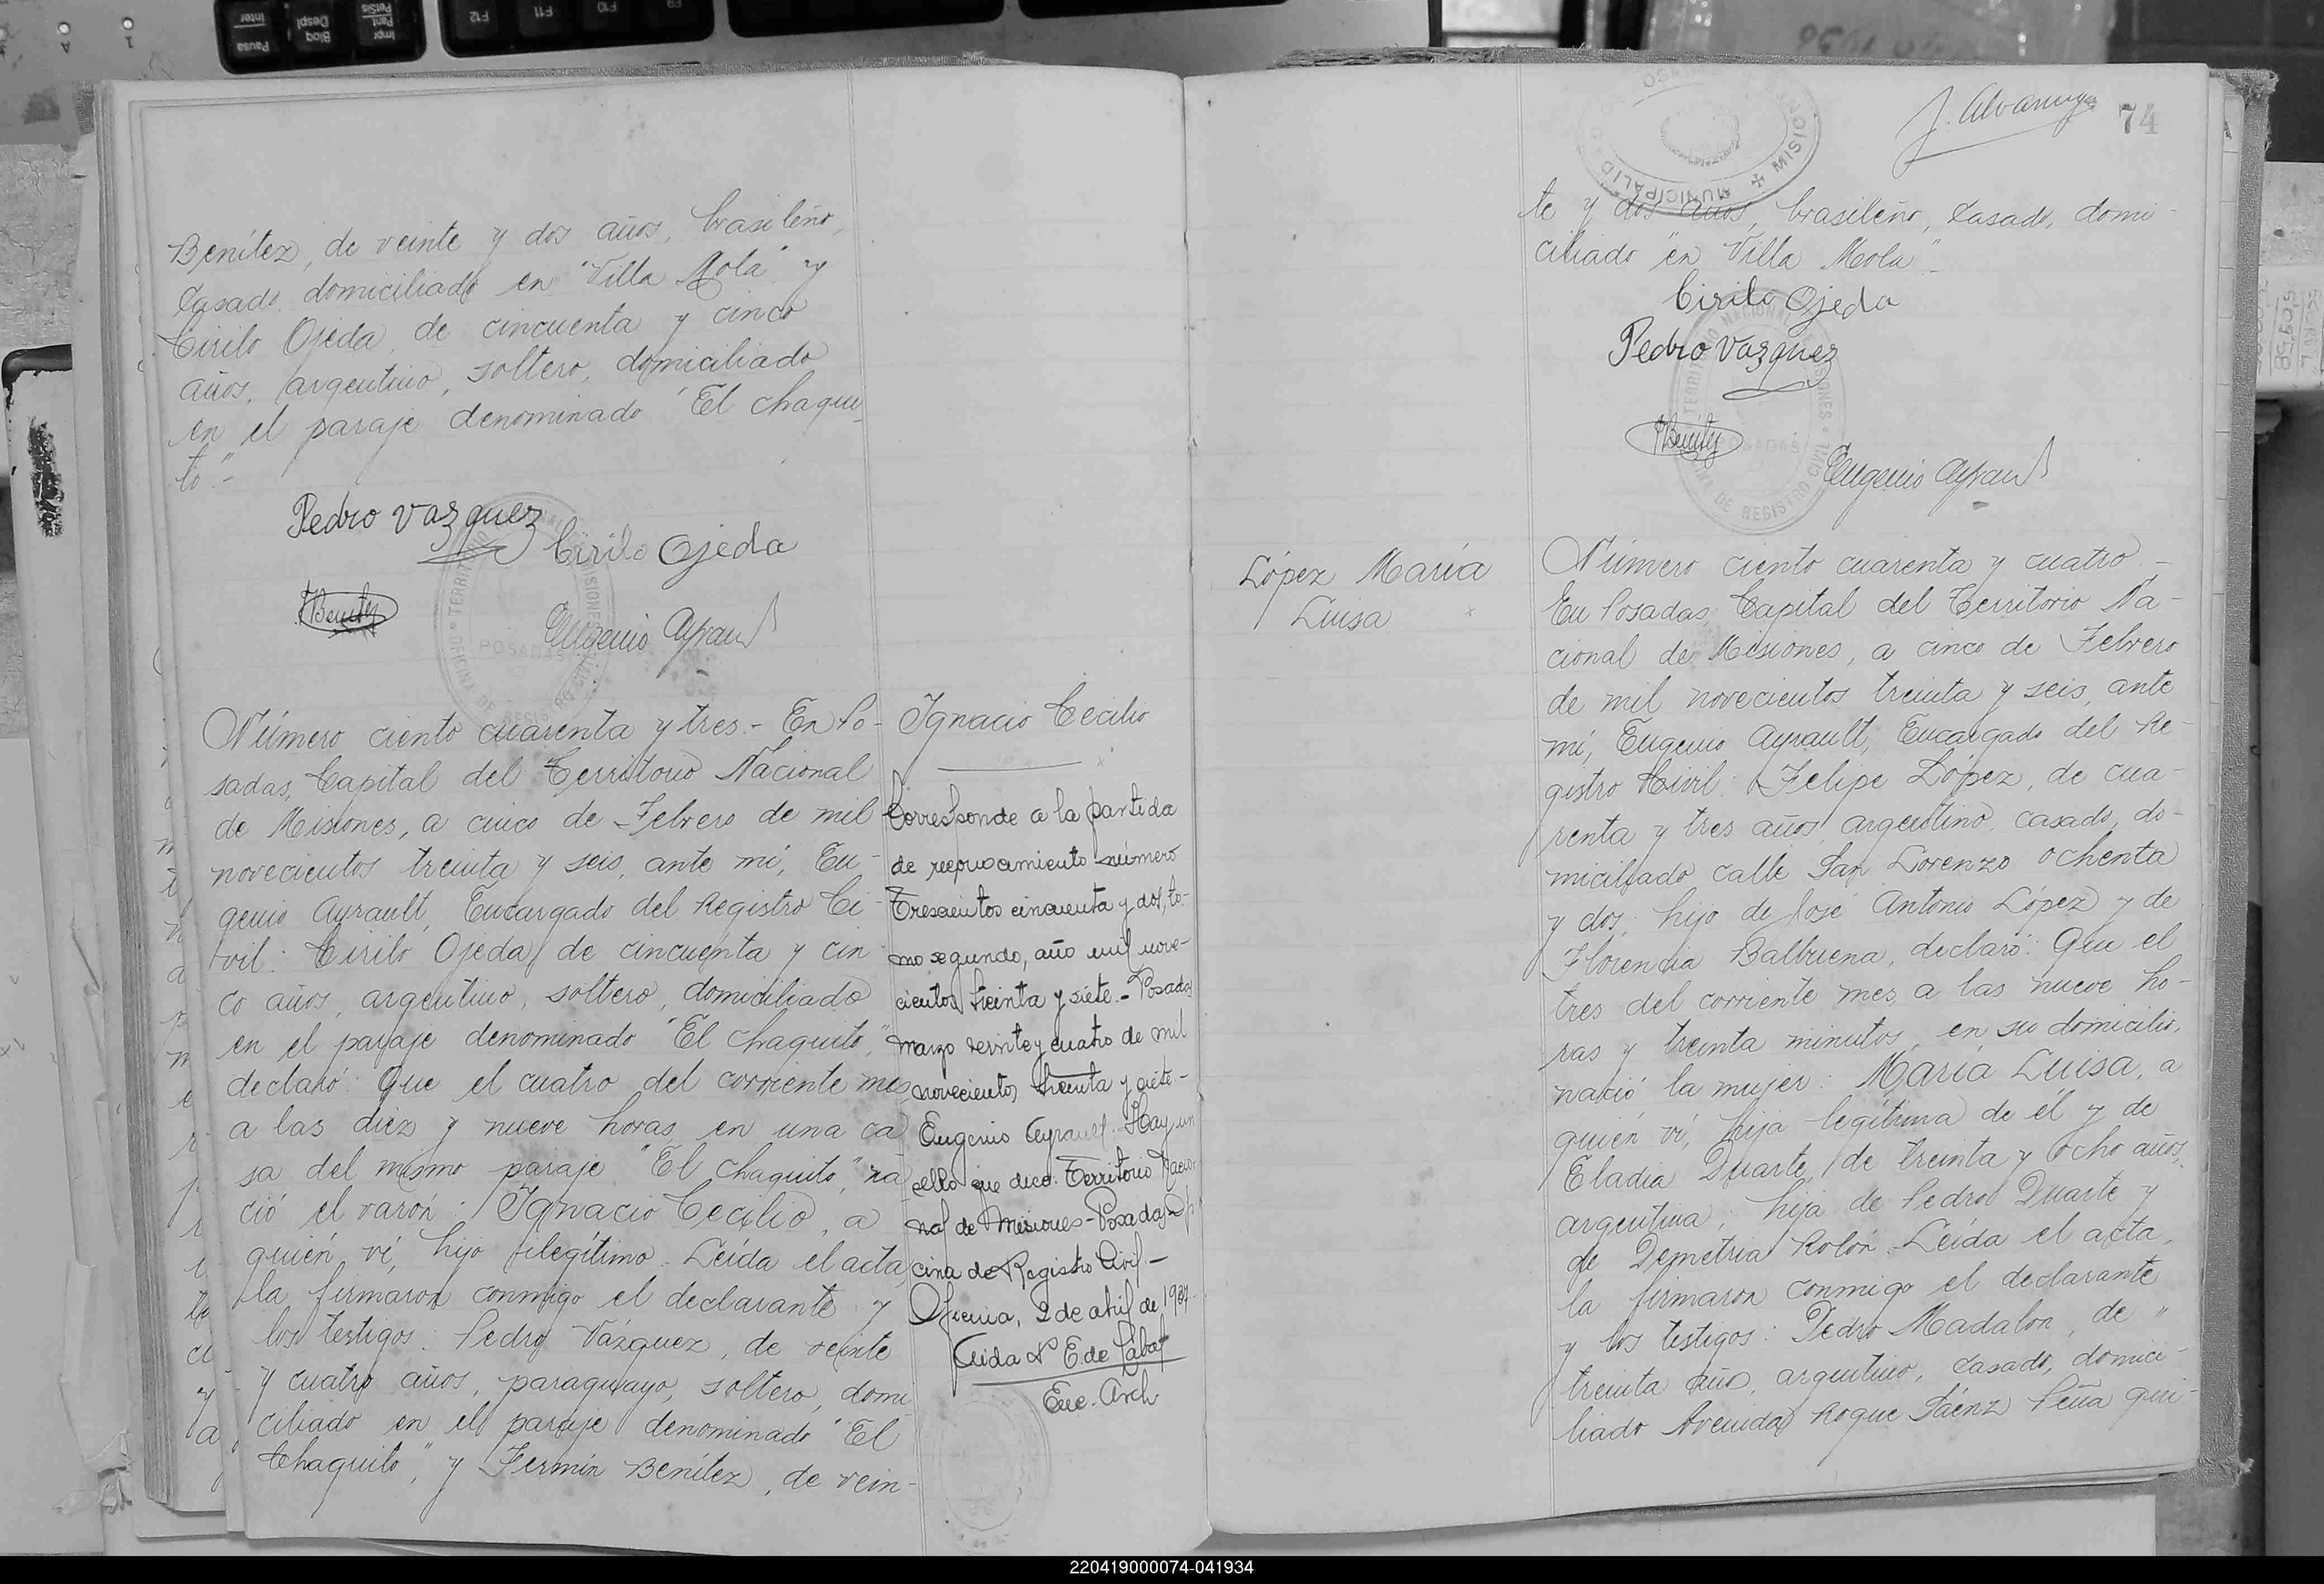 Benítez, de veinte y dos años, brasileño,
casado, domiciliado en "Villa Mola" y
Cirilo Ojeda, de cincuenta y cinco
años, argentino, soltero, domiciliado
en el paraje denominado "El chaqui-
to".-
Pedro Vazquez
Cirilo Ojeda
FBenitez
Eugenio Ayrault
Número ciento cuarenta y tres.- En Po-
sadas, Capital del Territorio Nacional
de Misiones, a cinco de Febrero de mil
novecientos treinta y seis, ante mí, Eu-
genio Ayrault, Encargado del Registro Ci-
vil: Cirilo Ojeda, de cincuenta y cin-
co años, argentino, soltero, domiciliado
en el paraje denominado "El chaquito",
declaró: Que el cuatro del corriente mes
a las diez y nueve horas, en una ca
sa del mismo paraje "El chaquito", na
ció el varón: Ignacio Cecilio, a
quién ví, hijo ilegítimo. Leída el acta,
la firmaron conmigo el declarante y
los testigos: Pedro Vázquez, de veinte
y cuatro años, paraguayo, soltero, domi
ciliado en el paraje denominado "El
Chaquito", y Fermín Benítez, de vein-
Ignacio Cecilio
Corresponde a la partida
de reconocimiento número
Trescientos cincuenta y dos, to-
mo segundo, año mil nove-
cientos treinta y siete.- Posadas
marzo veinte y cuatro de mil
novecientos treinta y siete.-
Eugenio Ayrault.- Hay un
sello que dice: Territorio Nacio-
nal de Misiones-Posadas-
cina de Registro Civil.-
Oficina, 2 de abril de 1937.-
E. de
Enc. Arch
J. Alvarenga
74
MUNICIPALIDAD POSADAS MISIONES
te y dos años, brasileño, casado, domi-
ciliado en "Villa Mola".-
Cirilo Ojeda
Pedro Vazquez
FBenitez
Eugenio Ayrault
OFICINA DE REGISTRO CIVIL TERRITORIO NACIONAL DE MISIONES
POSADAS
López María
Luisa
Número ciento cuarenta y cuatro.-
En Posadas, Capital del Territorio Na-
cional de Misiones, a cinco de Febrero
de mil novecientos treinta y seis, ante
mí, Eugenio Ayrault, Encargado del Re-
gistro Civil: Felipe López, de cua-
renta y tres años, argentino, casado, do-
miciliado calle San Lorenzo ochenta
y dos, hijo de José Antonio López y de
Florencia Balbuena, declaró: Que el
tres del corriente mes, a las nueve ho-
ras y treinta minutos, en su domicilio,
nació la mujer: María Luisa, a
quién ví, hija legítima de él y de
Eladia Duarte, de treinta y ocho años,
argentina, hija de Pedro Duarte y
de Demetria Rolón. Leída el acta,
la firmaron conmigo el declarante
y los testigos: Pedro Madalon, de "
treinta años, argentino, casado, domici-
liado Avenida Roque Sáenz Peña qui-
220419000074-041934